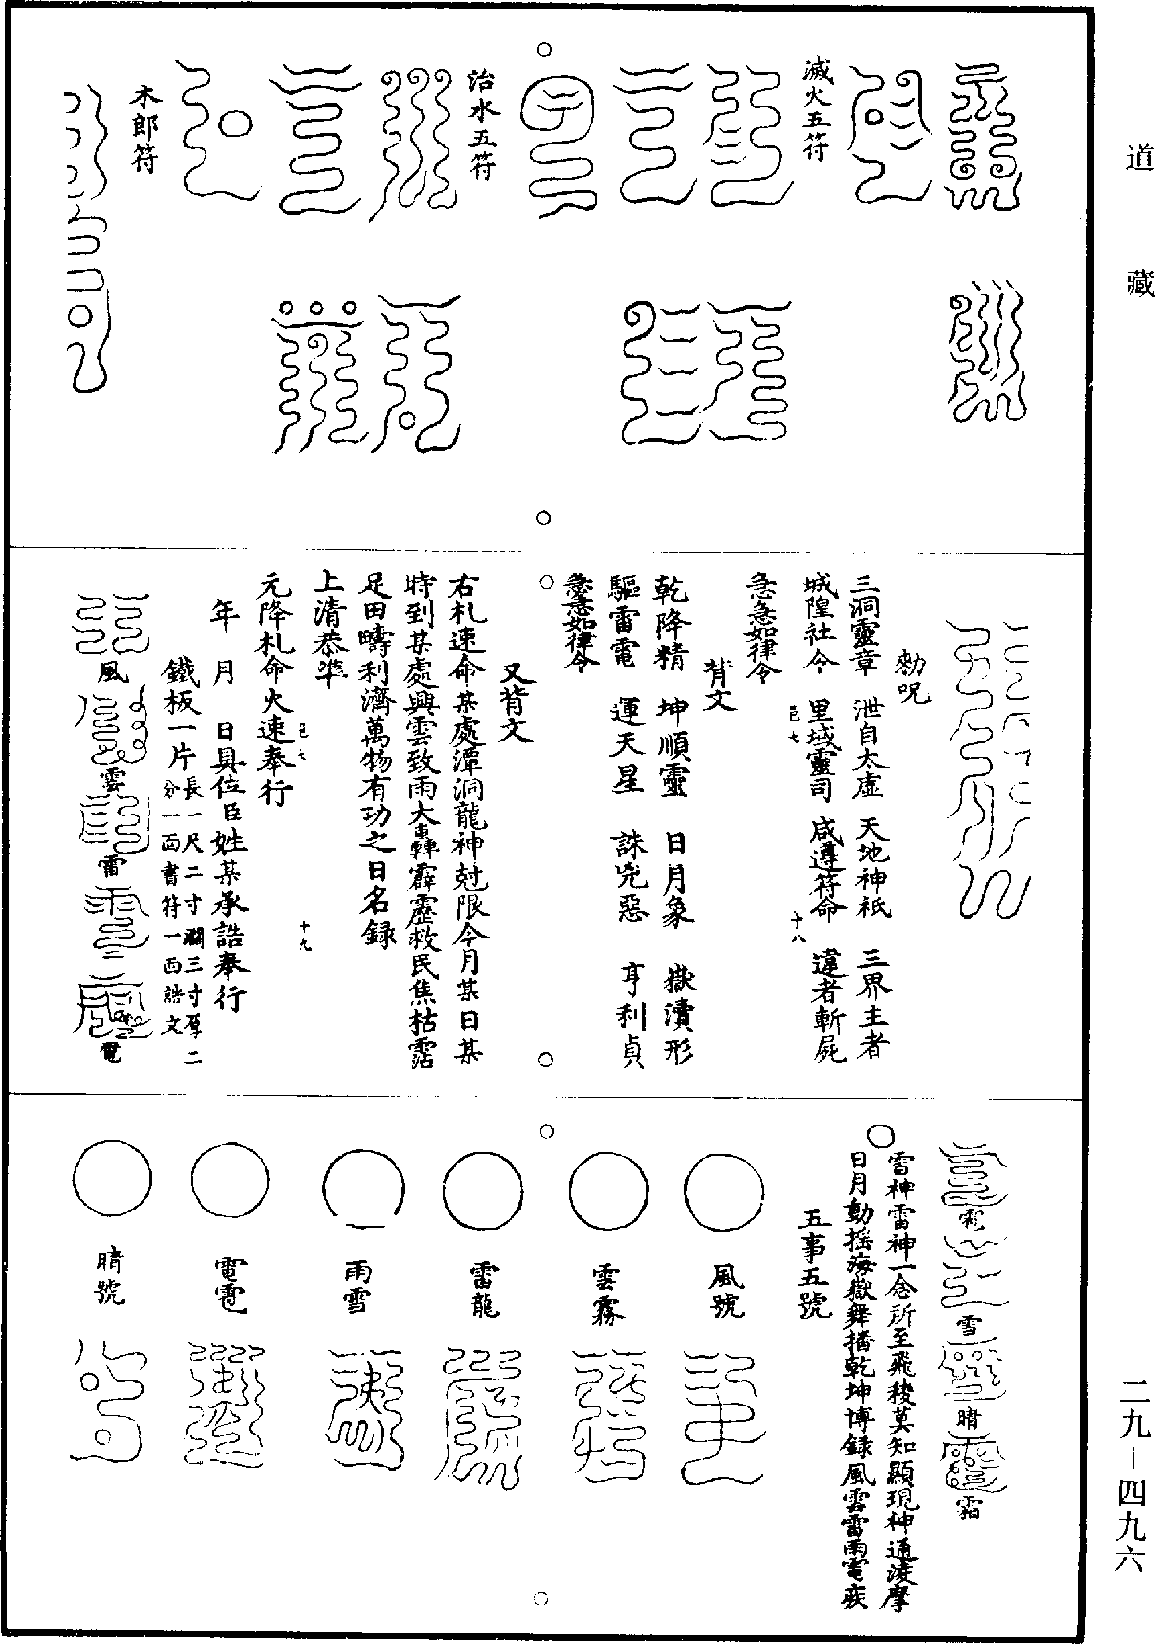 道藏
滅火五符
治水五符
木郎符
勑呪
三洞靈章 泄自太虛 天地神祇 三界主者
城隍社令 里域靈司 咸遵符命 違者斬屍
急急如律令
背文
乾降精 坤順靈 日月象 嶽瀆形
驅雷電 運天星 誅兇惡 亨利貞
急急如律令
又背文
右札速命某處潭洞龍神尅限今月某日某
時到某處興雲致雨大轟霹靂救民焦枯霑
足田疇利濟萬物有功之日名録
上清恭準
元降札命火速奉行
年 月 日具位臣姓某承誥奉行
鐵板一片長一尺二寸闊三寸厚二
分一面書符一面誥文
風
雲
雷
電
十八
十九
雪
晴
霜
雷神雷神一念所至飛稜莫知顯現神通凌摩
日月動搖海嶽舞播乾坤博録風雲雷雨電疾
五事五號
風號
雲霧
雷龍
雨雪
電雹
晴號
二九—四九六